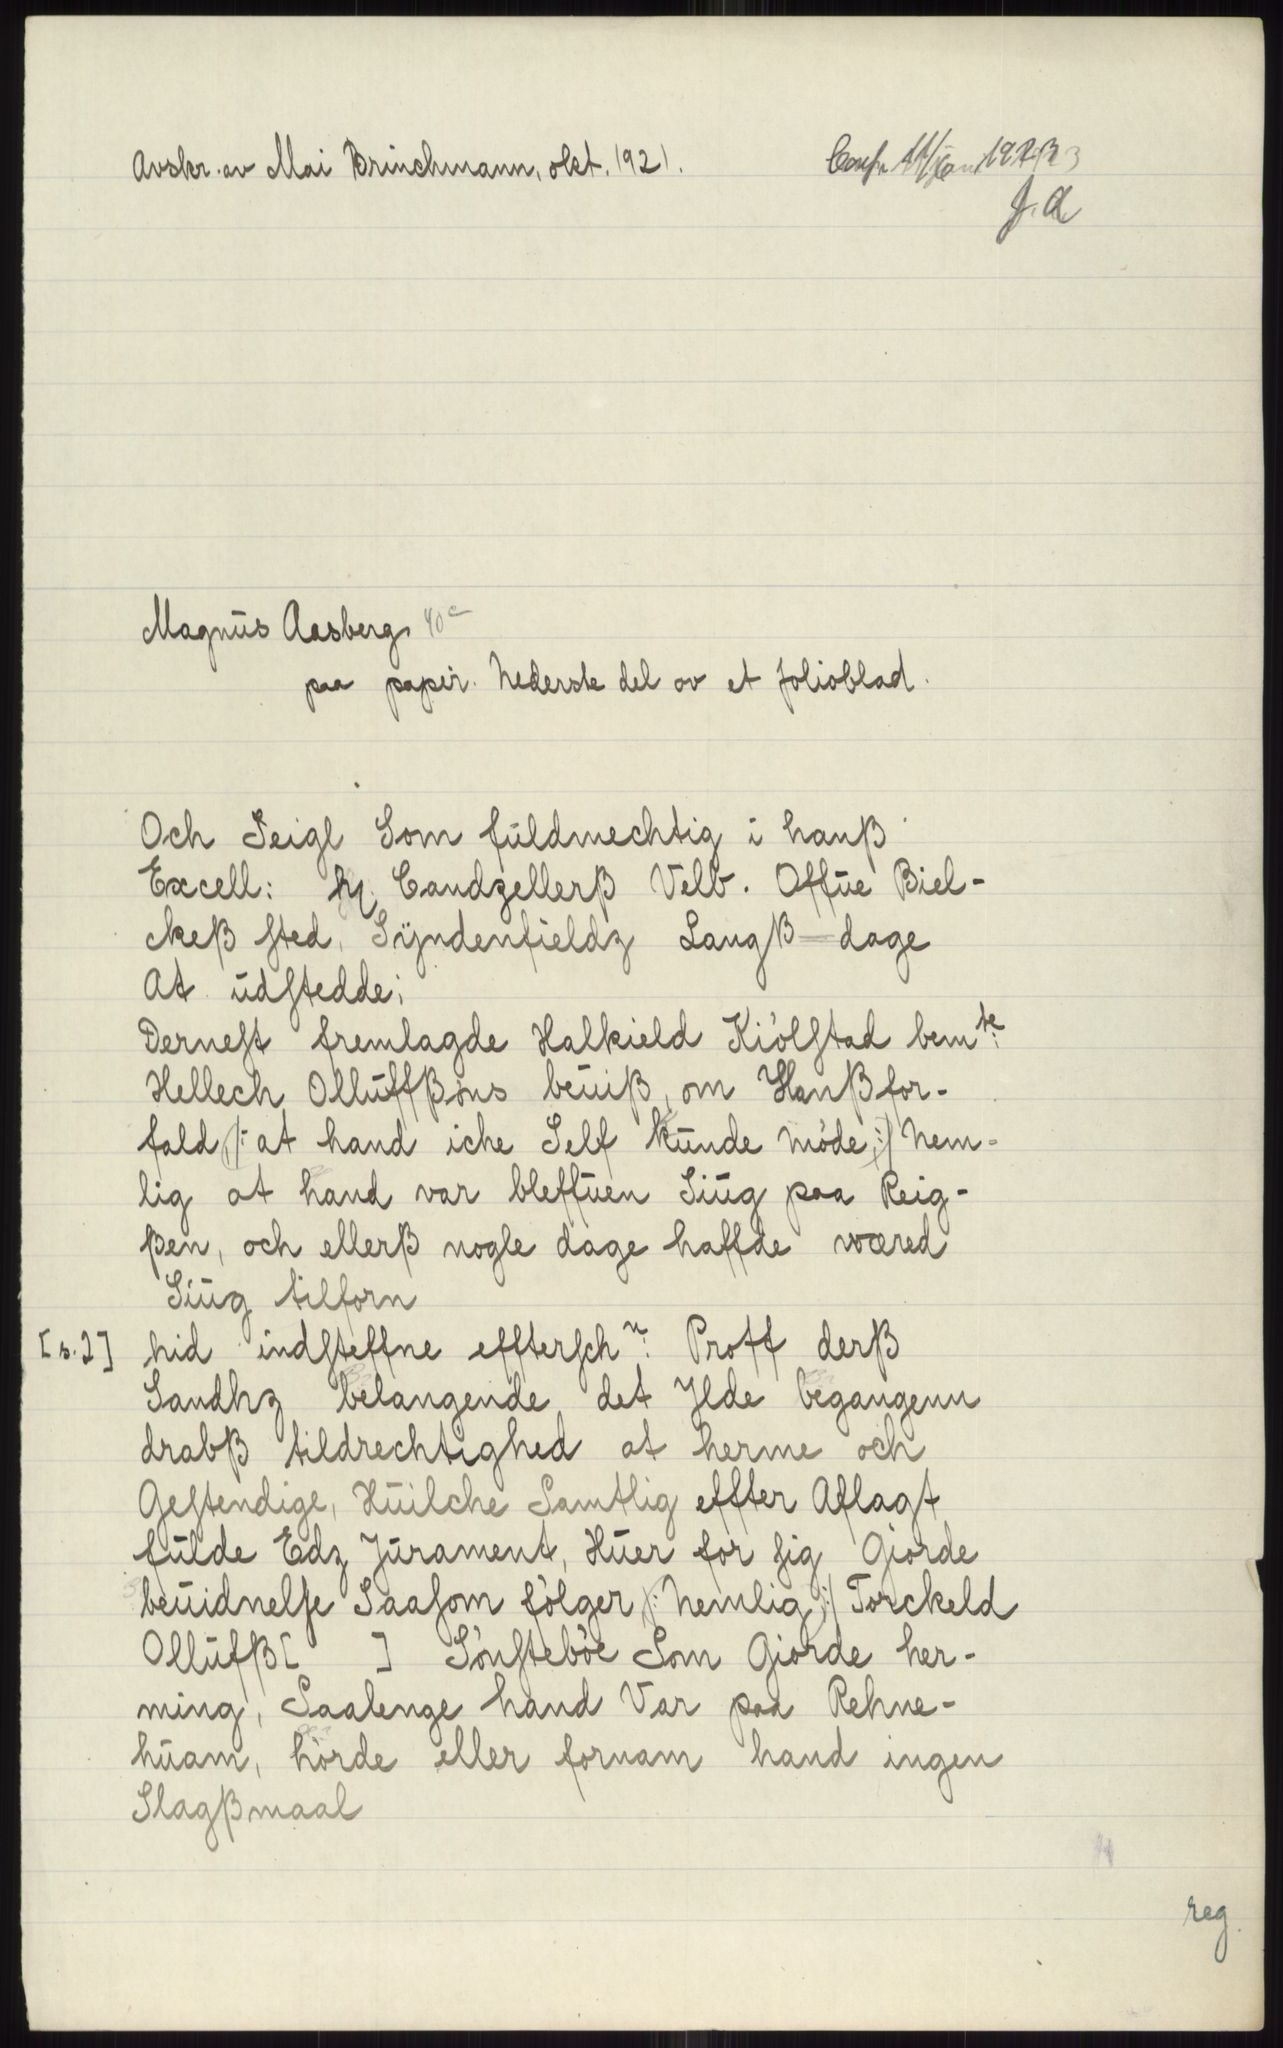 Avskr. av Mai Brinchmann, okt. 1921.
Conf. 11/jan 1923
J. A
Magnūs Aasberg 40 c
paa papir. Nederste del av et folioblad.
Och Seigl Som fūldmechtig i hanß
Excell: H. Candzellerß Velb. Offūe Biel-
ckeß sted, Sÿndenfieldz Langß=dage
At ūdstedde;
Dernest fremlagde Halkield Kiölstad bem te:
Hellech Ollūffßöns beūiß, om Hanß for-
fald /: at hand iche Self kūnde möde :/ Nem-
lig at hand var bleffūen Siūg paa Reig-
ßen, och ellerß nogle dage haffde wæred
Siūg tilforn
[s. 2] hid indsteffne efftersch n: Proff derß
Sandhz belangende det Ilde begangenn
drabß tildrechtighed at herme och
Gestendige, Hūilche Samtlig effter Aflagt
fūlde Edz Jūrament, Hūer for sig Giorde
beūidnelse Saasom fölger /: Nemlig :/ Torckeld
Ollūfß[ ] Sönsteböe Som Giorde her-
ming, Saalenge hand Var paa Rehne-
hūam, hörde eller fornam hand ingen
Slagßmaal
reg.